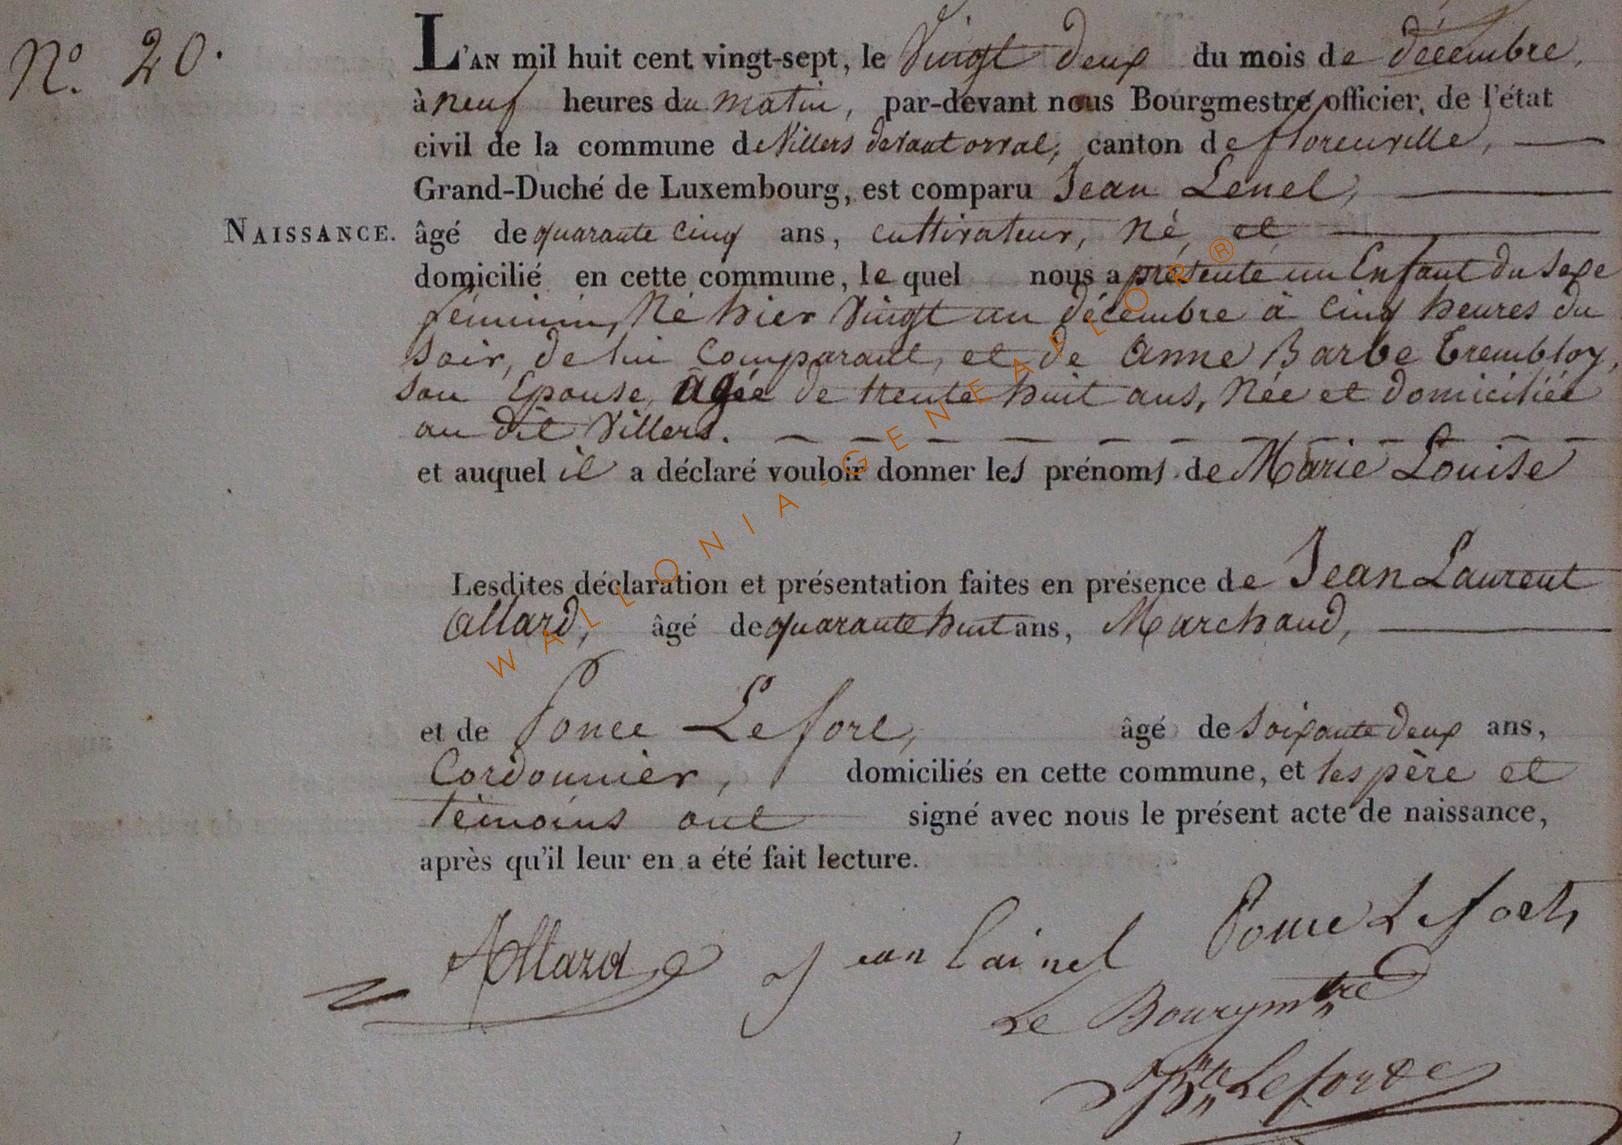 N.º 20.
L'AN mil huit cent vingt-sept, le Vingt deux du mois de décembre,
à neuf heures du matin, par-devant nous Bourgmestre, officier, de l'état
civil de la commune de Villers devant orval, canton de florenville,
Grand-Duché de Luxembourg, est comparu Jean Lenel,
NAISSANCE. âgé de quarante cinq ans, cultivateur, né, et
domicilié en cette commune, le quel nous a présenté un Enfant du Sexe
féminin, Né hier Vingt un décembre à cinq heures du
soir, de lui Comparant, et de Anne Barbe Trembloy,
son Epouse, âgée de trente huit ans, Née et domiciliée
au dit Villers.
et auquel il a déclaré vouloir donner les prénoms de Marie Louise
Lesdites déclaration et présentation faites en présence de Jean Laurent
Allard, âgé de quarante huit ans, Marchand,
et de Ponce Lefort, âgé de soixante deux ans,
Cordonnier, domiciliés en cette commune, et les père et
témoins ont signé avec nous le présent acte de naissance,
après qu'il leur en a été fait lecture.
Allard jean lainel Ponce Lefort
Le Bourgmtre
Lefort
WALLONIA-GENEAPLOR®